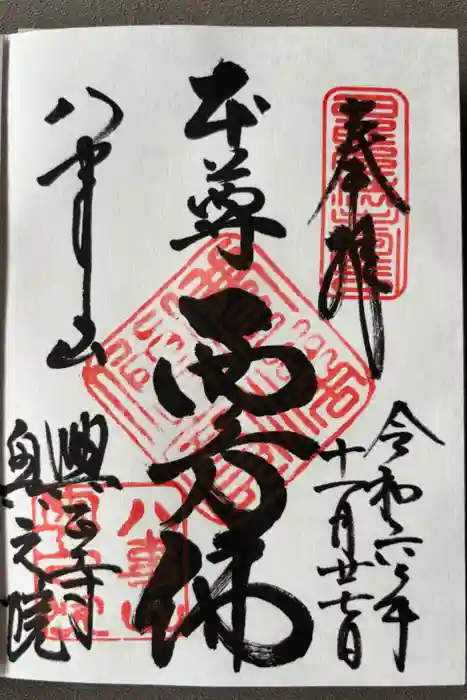 奉拝
令和六年
十一月廿七日
本尊
西方佛
八事山
興正寺
奥之院
八事山